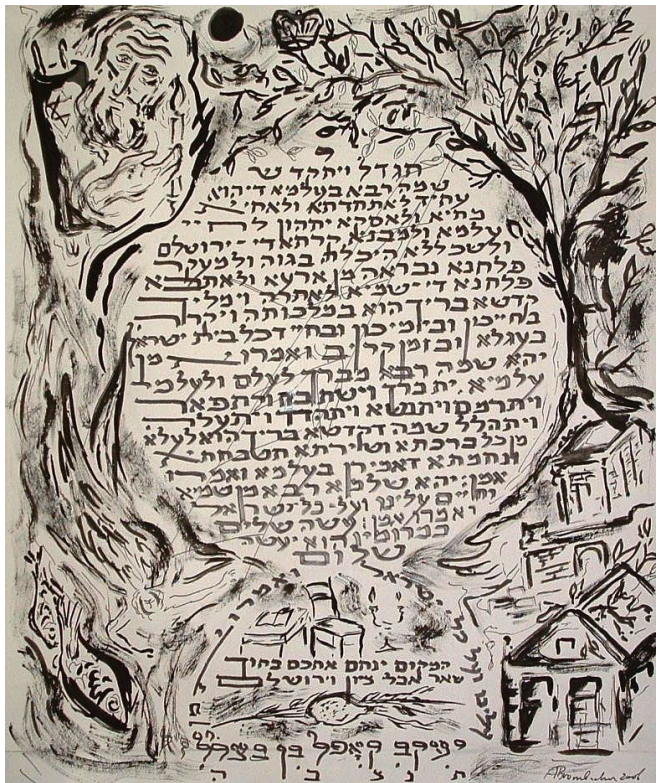 יתגדל ויתקדש
שמה רבא בעלמא די הוא
עתיד לאתחדתא ולאחי
מתיא ולאסקא יתהון לחיי
עלמא ולמבנא קרתא די ירושלם
ולשכללא היכלה בגוה ולמעקר
פלחנא נכראה מן ארעא ולאתבא
פלחנא די שמיא לאתרה וימליך
קדשא בריך הוא במלכותה ויקרה
בחייכון וביומיכון ובחיי דכל בית ישראל
בעגלא ובזמן קריב ואמרו אמן
יהא שמה רבא מברך לעלם ולעלמי
עלמיא. יתברך וישתבח ויתפאר
ויתרמם ויתנשא ויתהדר ויתעלה
ויתהלל שמה דקדשא בריך הוא לעלא
מן כל ברכתא ושירתא תשבחתא
ונחמתא דאמירן בעלמא ואמרו
אמן: יהא שלמא רבא מן שמיא
וחיים עלינו ועל כל ישראל
ואמרו אמן: עשה שלום
במרומיו הוא יעשה
שלום
ישראל
ואמרו
המקום ינחם אתכם בתוך
שאר אבלי ציון וירושלם
יעקב קאפל בן בצלאל
ת נ צ ב ה